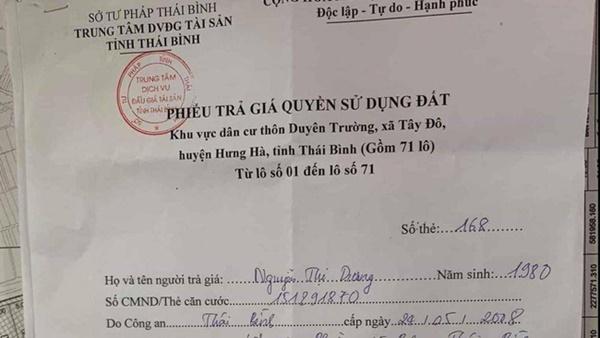 SỞ TƯ PHÁP THÁI BÌNH
TRUNG TÂM DVĐG TÀI SẢN
TỈNH THÁI BÌNH
Độc lập - Tự do - Hạnh phúc
TRUNG TÂM
DỊCH VỤ
ĐẤU GIÁ TÀI SẢN
TỈNH THÁI BÌNH
PHIẾU TRẢ GIÁ QUYỀN SỬ DỤNG ĐẤT
Khu vực dân cư thôn Duyên Trường, xã Tây Đô,
huyện Hưng Hà, tỉnh Thái Bình (Gồm 71 lô)
Từ lô số 01 đến lô số 71
Số thẻ: 168
Họ và tên người trả giá: Nguyễn Thị Dương Năm sinh: 1980
Số CMND/Thẻ căn cước: 151891870
Do Công an Thái Bình cấp ngày 24.05.
581958.160
2277571.310